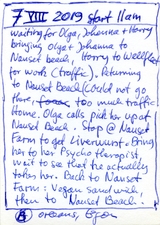 7 VIII 2019 start 11am
waiting for Olga, Johanna + Harry
bringing Olga + Johanna to
Nauset beach, Harry to Wellfleet
for work (traffic). Returning
to Nauset Beach (could not go
there, too much traffic)
Home. Olga calls pick her up at
Nauset Beach. Stop @ Nauset
Farm to get Liverwurst. Bring
her to her Psychotherapist,
wait to see that he actually
takes her. Back to Nauset
Farm: Vegan Sandwich
then to Nauset Beach.
Orleans,